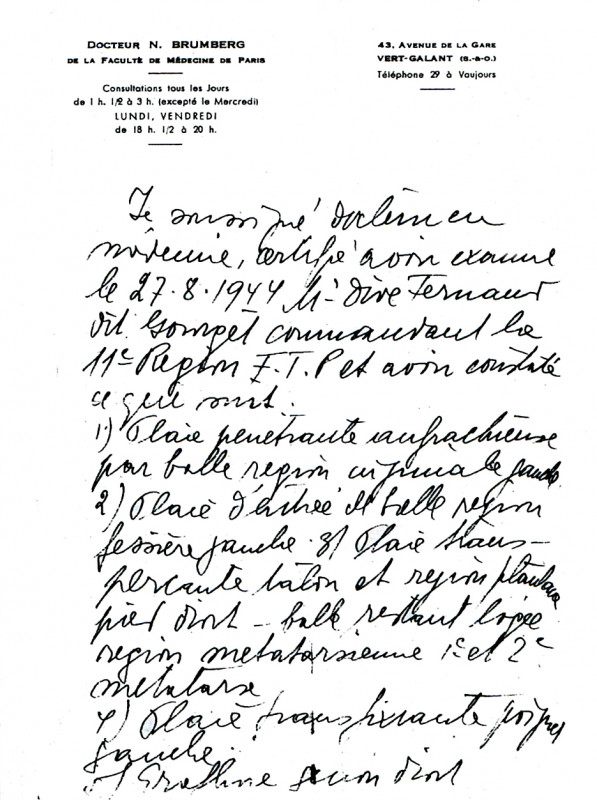 DOCTEUR N. BRUMBERG
DE LA FACULTÉ DE MÉDECINE DE PARIS
Consultations tous les Jours
de 1 h. 1/2 à 3 h. (excepté le Mercredi)
LUNDI, VENDREDI
de 18 h. 1/2 à 20 h.
43, AVENUE DE LA GARE
VERT-GALANT (S.-&-O.)
Téléphone 29 à Vaujours
Je soussigné docteur en
médecine, certifie avoir examiné
le 27.8.1944 Mr Dive Fernand
dit Georget commandant la
11e Région F.T.P et avoir constaté
ce qui suit :
1) Plaie pénétrante anfractueuse
par balle région inguinale gauche
2) Plaie d'entrée de balle région
fessière gauche. 3) Plaie trans-
perçante talon et région plantaire
pied droit - balle restant logée
région métatarsienne 1e et 2e
métatarse
4) Plaie transfixiante poignet
gauche.
5) genou droit